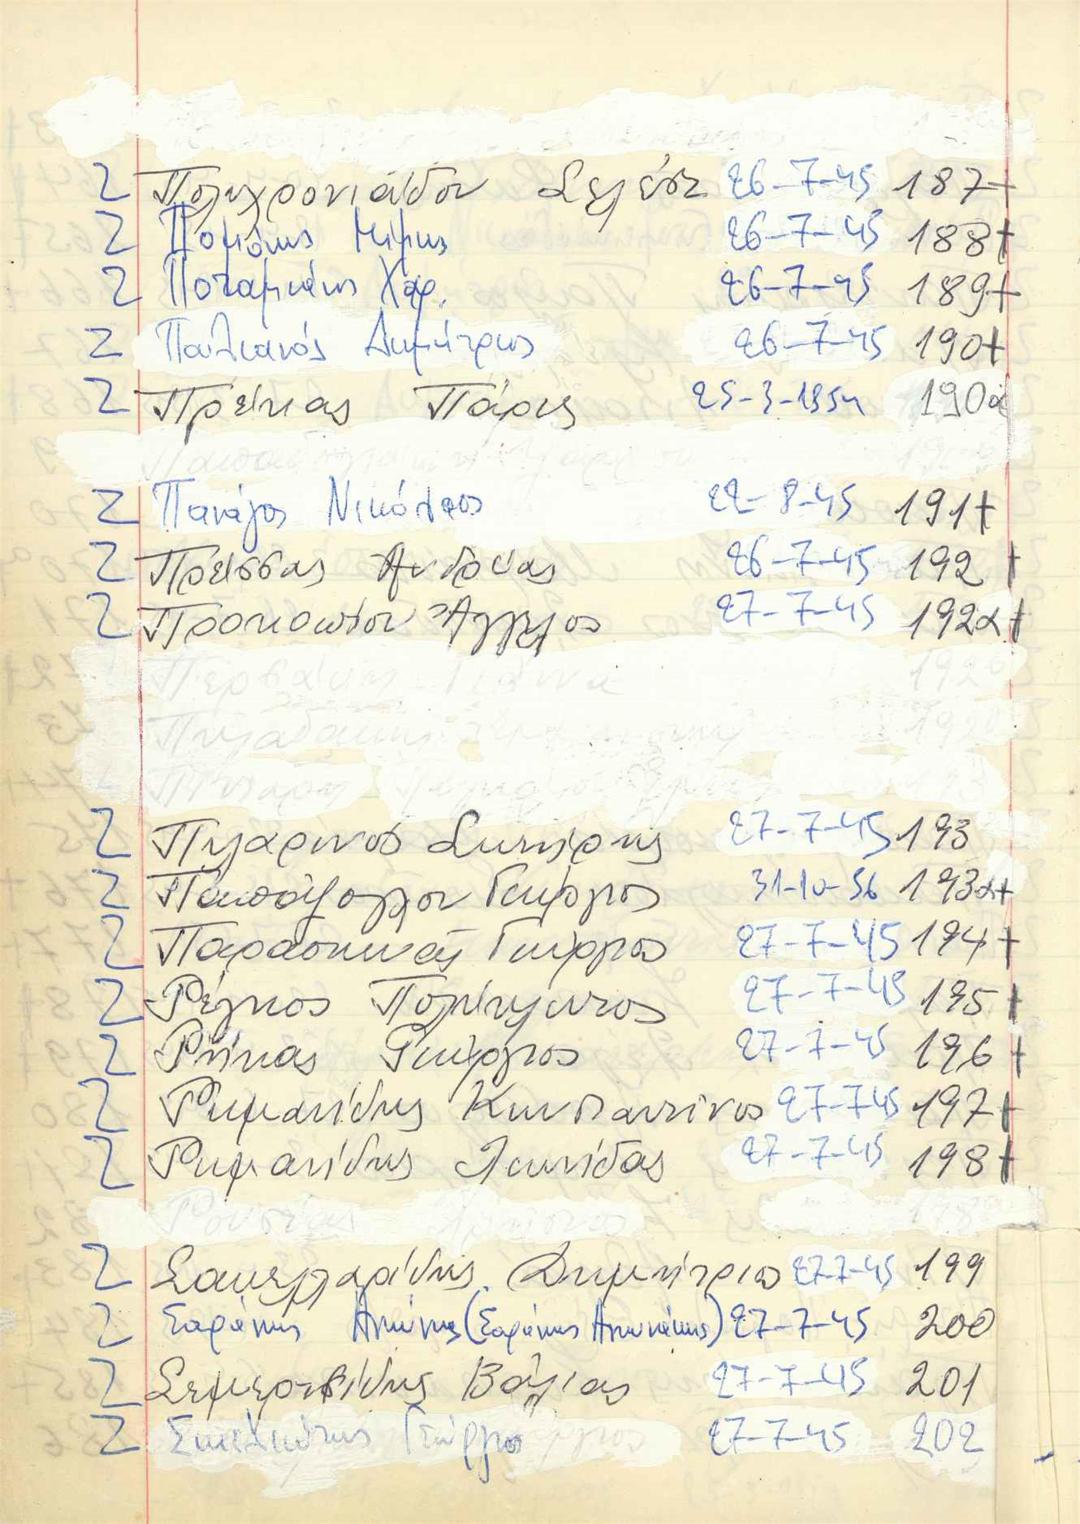 Ζ Πολυχρονιάδου Σελέστ 26-7-45 187+
Ζ Πομόνης Μίμης 26-7-45 188+
Ζ Ποταμιάνης Χαρ. 26-7-45 189+
Ζ Παυλιανός Δημήτριος 26-7-45 190+
Ζ Πρέκας Πάρις 25-3-1954 190α
Ζ Πανάγος Νικόλαος 22-8-45 191+
Ζ Πρέσσας Ανδρέας 26-7-45 192 +
Ζ Προκοπίου Άγγελος 27-7-45 192α+
Ζ Πυλαρινός Σωτήρης 27-7-45 193
Ζ Παπάζογλου Γεώργιος 31-10-56 193α+
Ζ Παρασκευάς Γεώργιος 27-7-45 194+
Ζ Ρέγκος Πολύκλειτος 27-7-45 195+
Ζ Ρήκας Γεώργιος 27-7-45 196+
Ζ Ρωμανίδης Κωνσταντίνος 27-7-45 197+
Ζ Ρωμανίδης Λεωνίδας 27-7-45 198+
Ζ Σακελλαρίδης Δημήτριος 27-7-45 199
Ζ Σαράκης Αντώνης (Σαράκης Αντωνάκης) 27-7-45 200
Ζ Σεμερτζίδης Βάλιας 27-7-45 201
Ζ Σικελιώτης Γεώργιος 27-7-45 202